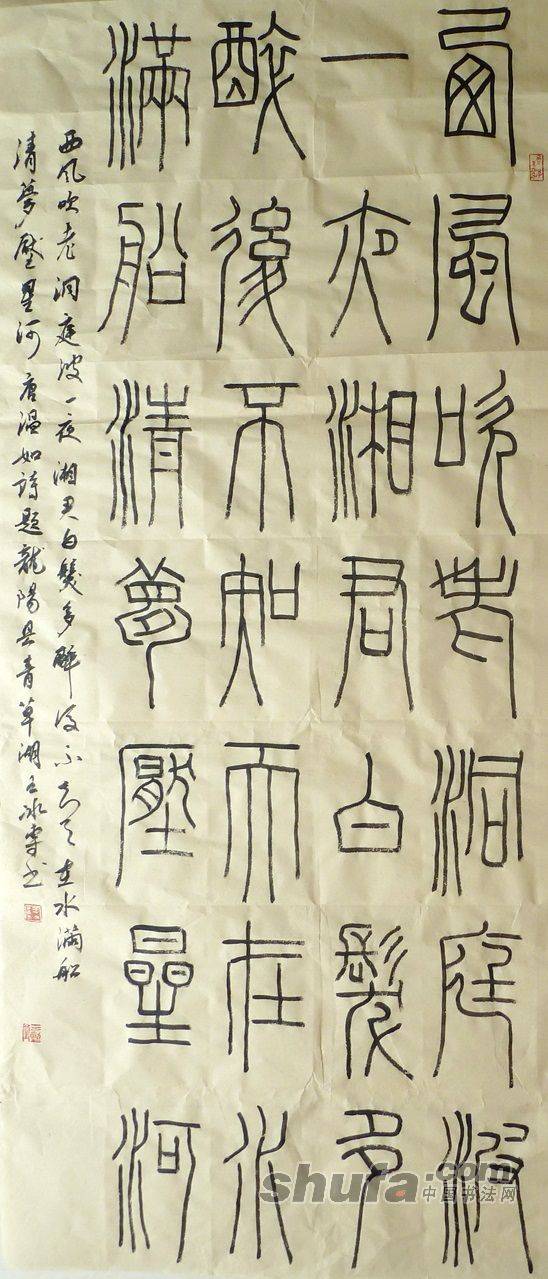 西風吹老洞庭波
一夜湘君白髮多
醉後不知天在水
滿船清夢壓星河
西風吹老洞庭波一夜湘君白髮多醉後不知天在水滿船
清夢壓星河 唐温如詩題龍陽縣青草湖王冰雪书
shufa.com
中国书法网